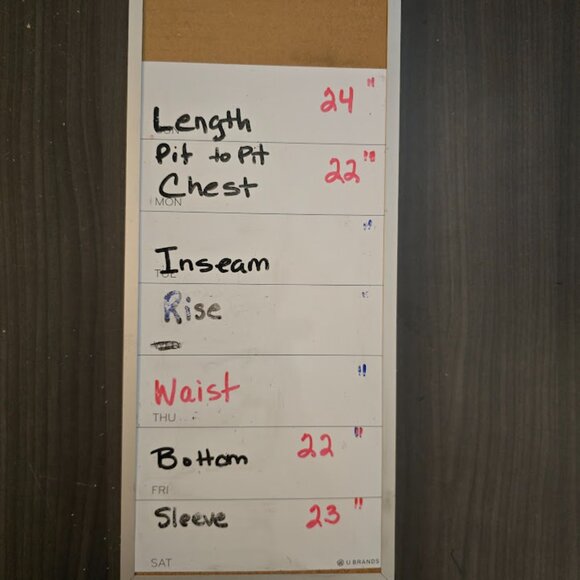 Length 24"
Pit to Pit
Chest 22"
MON
Inseam "
TUE
Rise "
Waist "
THU
Bottom 22"
FRI
Sleeve 23"
SAT
U BRANDS